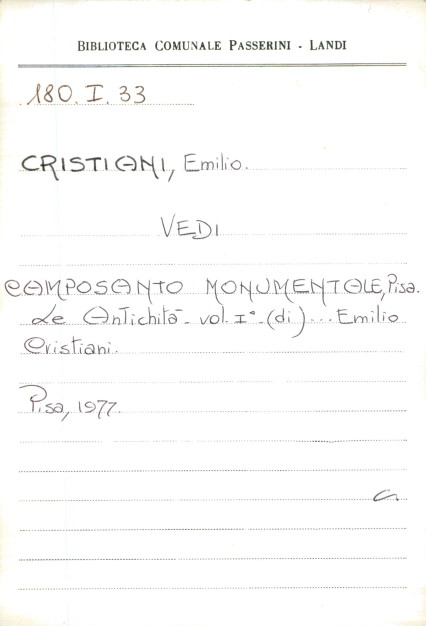 BIBLIOTECA COMUNALE PASSERINI - LANDI
180. I. 33
CRISTIANI, Emilio.
VEDI
CAMPOSANTO MONUMENTALE, Pisa.
Le Antichità - vol. I° - (di)... Emilio
Cristiani.
Pisa, 1977.